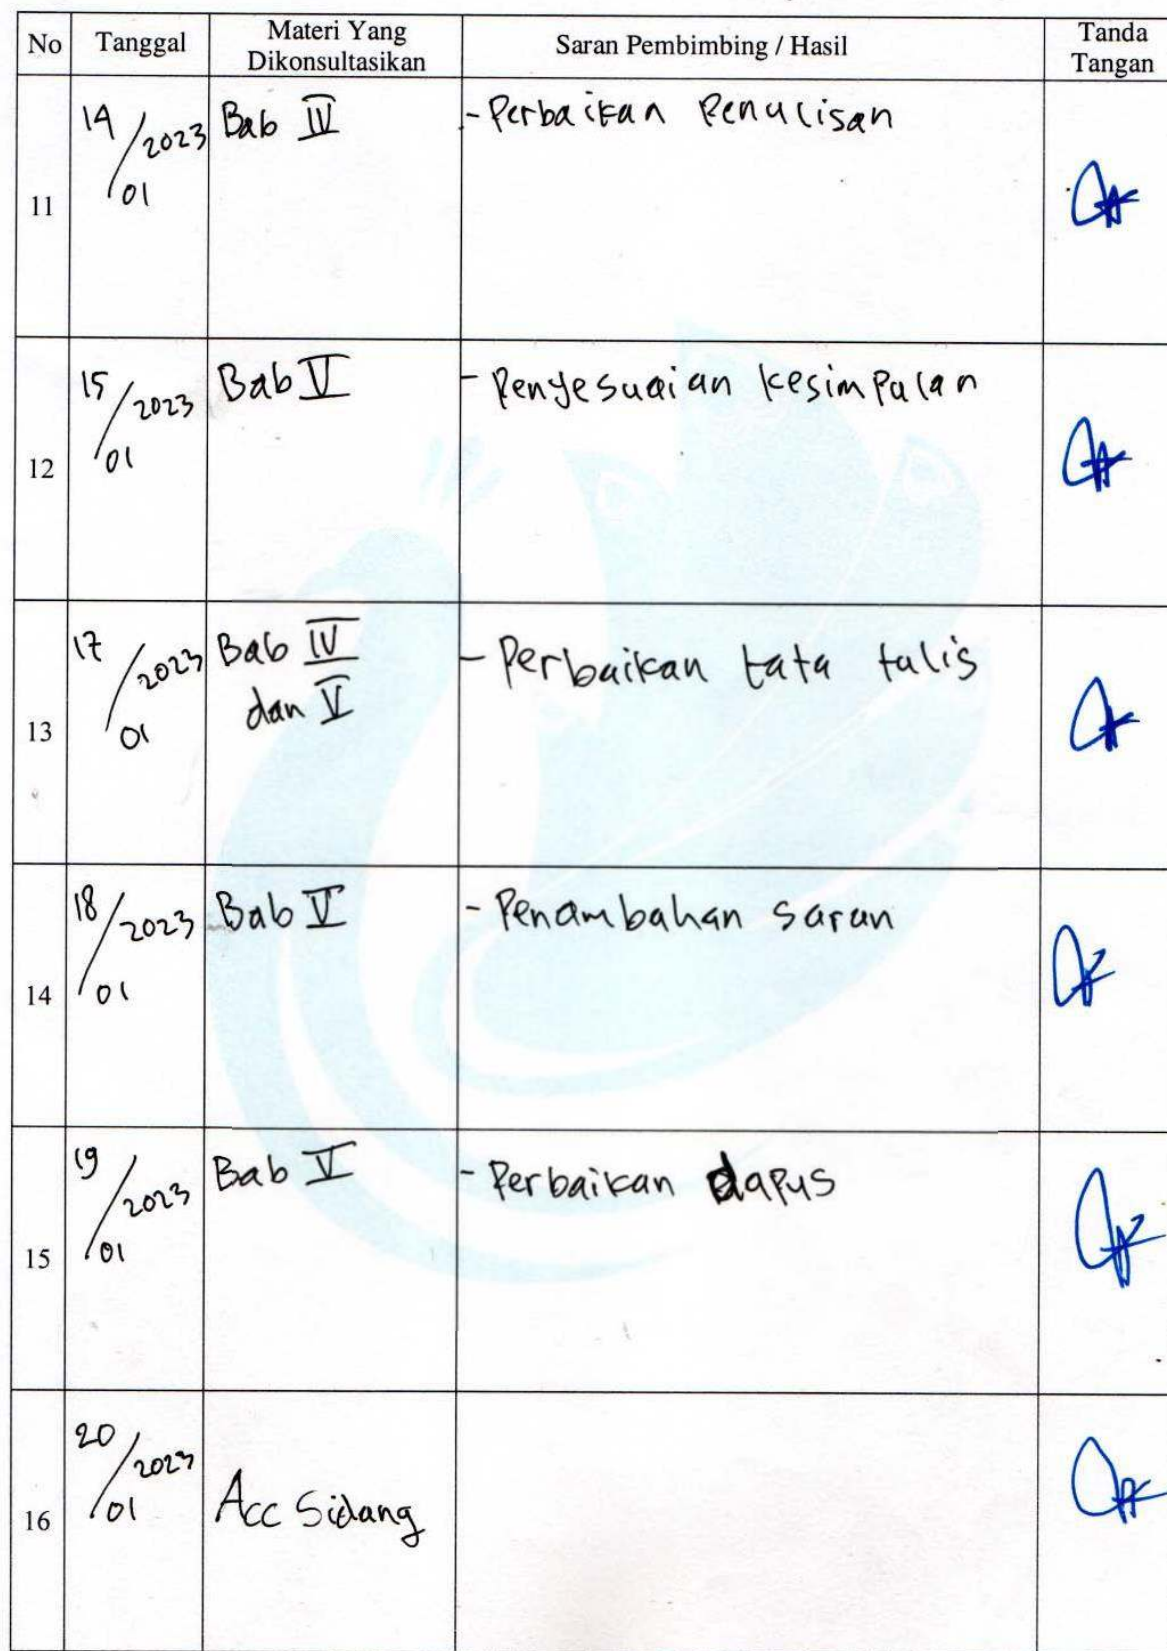 No Tanggal Materi Yang Dikonsultasikan Saran Pembimbing / Hasil Tanda Tangan
11 14/01/2023 Bab IV - Perbaikan Penulisan
12 15/01/2023 Bab V - Penyesuaian kesimpulan
13 17/01/2023 Bab IV dan V - Perbaikan tata tulis
14 18/01/2023 Bab V - Penambahan saran
15 19/01/2023 Bab V - Perbaikan dapus
16 20/01/2023 Acc Sidang